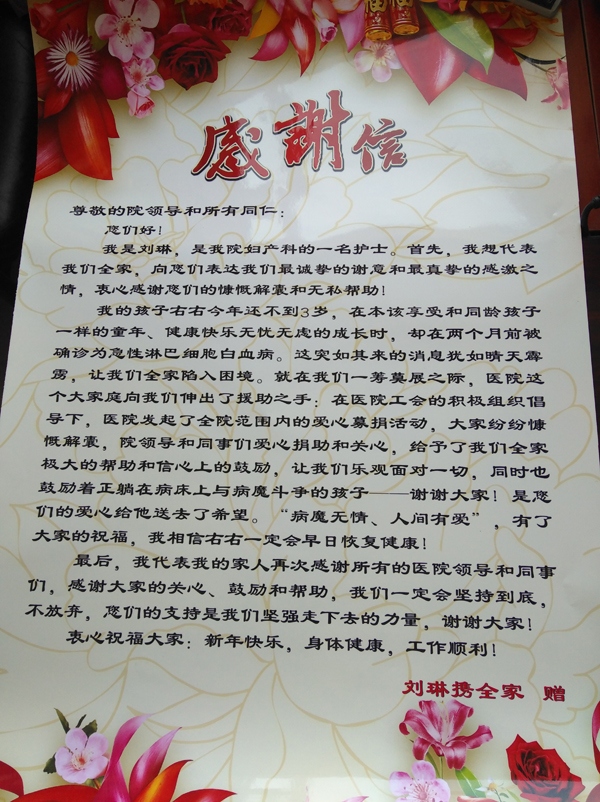 感謝信
尊敬的院领导和所有同仁：
您们好！
我是刘琳，是我院妇产科的一名护士。首先，我想代表
我们全家，向您们表达我们最诚挚的谢意和最真挚的感激之
情，衷心感谢您们的慷慨解囊和无私帮助！
我的孩子右右今年还不到3岁，在本该享受和同龄孩子
一样的童年、健康快乐无忧无虑的成长时，却在两个月前被
确诊为急性淋巴细胞白血病。这突如其来的消息犹如晴天霹
雳，让我们全家陷入困境。就在我们一筹莫展之际，医院这
个大家庭向我们伸出了援助之手：在医院工会的积极组织倡
导下，医院发起了全院范围内的爱心募捐活动，大家纷纷慷
慨解囊，院领导和同事们爱心捐助和关心，给予了我们全家
极大的帮助和信心上的鼓励，让我们乐观面对一切，同时也
鼓励着正躺在病床上与病魔斗争的孩子——谢谢大家！是您
们的爱心给他送去了希望。“病魔无情、人间有爱”，有了
大家的祝福，我相信右右一定会早日恢复健康！
最后，我代表我的家人再次感谢所有的医院领导和同事
们，感谢大家的关心、鼓励和帮助，我们一定会坚持到底，
不放弃，您们的支持是我们坚强走下去的力量，谢谢大家！
衷心祝福大家：新年快乐，身体健康，工作顺利！
刘琳携全家 赠